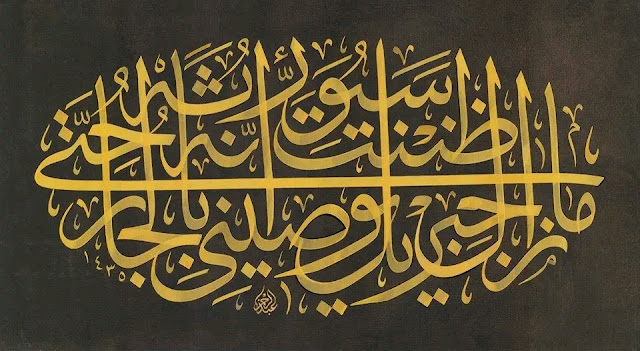 ما زال جبريل يوصيني بالجار حتى ظننت أنه سيورثه
١٤٣٥